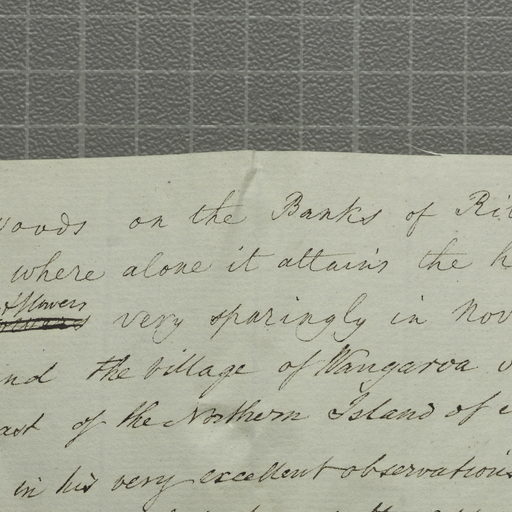 woods on the Banks of
where alone it attains the
& flowers
very sparingly in
the Village of Wangaroa
of the Northern Island of
in his very excellent observations